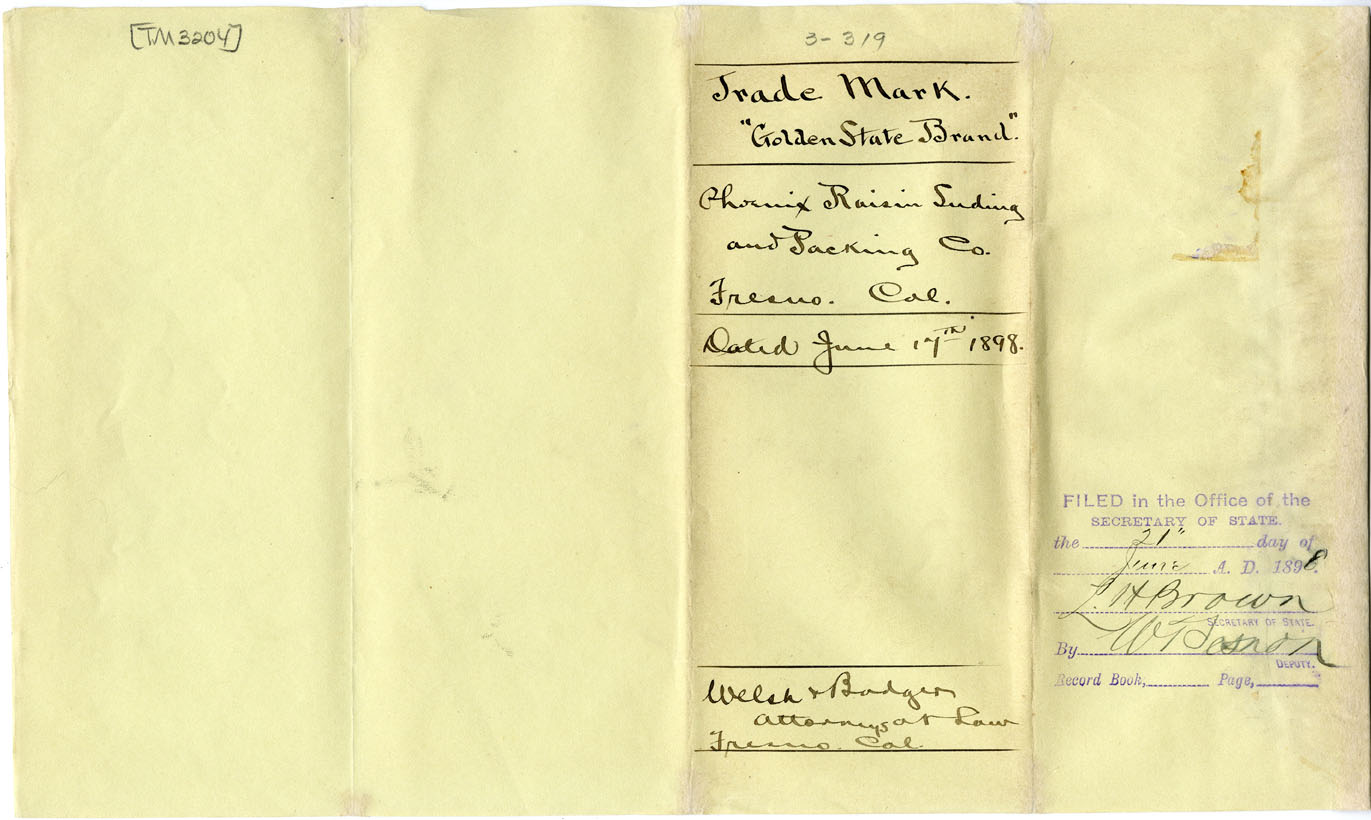 [TM3204]
3-319
Trade Mark.
"Golden State Brand".
Phoenix Raisin Seeding
and Packing Co.
Fresno. Cal.
Dated June 17TH 1898.
Welsh & Badger
Attorneys at Law
Fresno. Cal.
FILED in the Office of the
SECRETARY OF STATE.
the 21" day of
June A. D. 1898.
L. H Brown
SECRETARY OF STATE.
By
DEPUTY.
Record Book, Page,